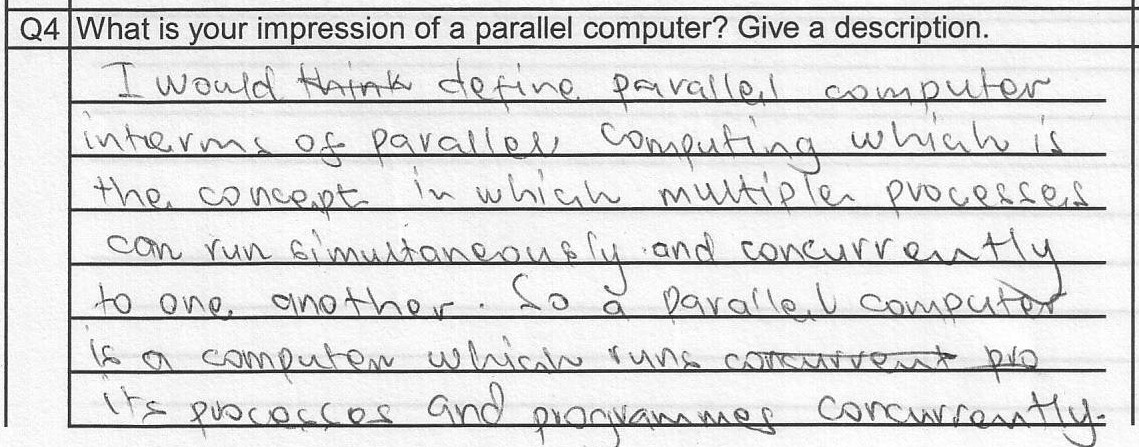 Q4 What is your impression of a parallel computer? Give a description.
I would think define parallel computer
interms of parallel computing which is
the concept in which multiple processes
can run simultaneously and concurrently
to one another. So a parallel computer
is a computer which runs concurrent pro
its processes and programmes concurrently.